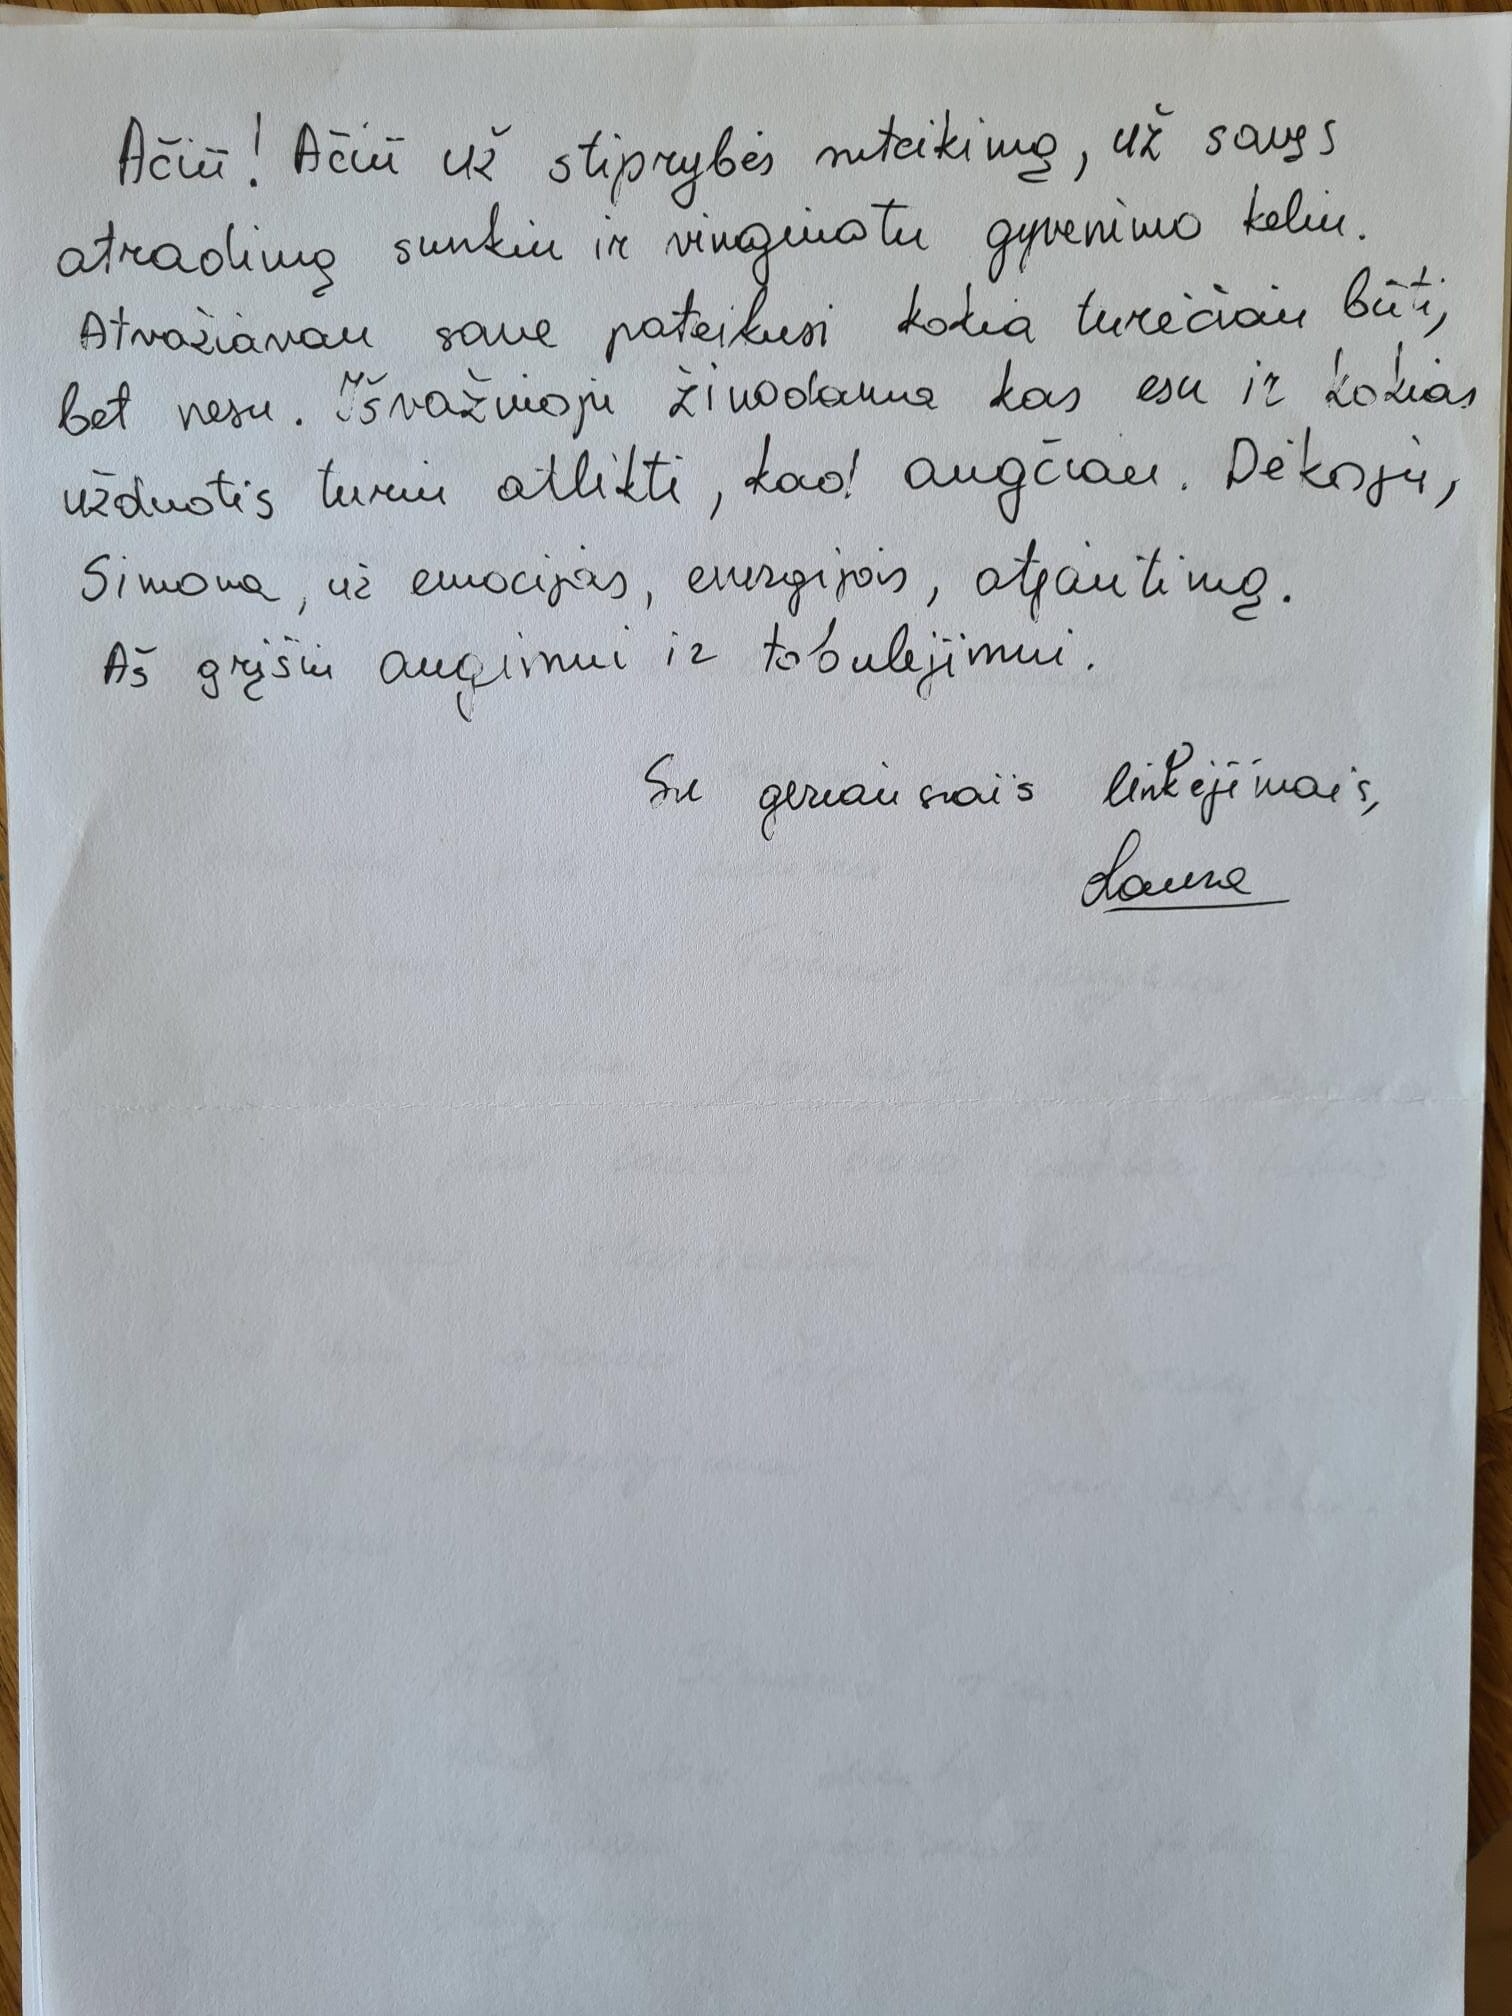 Ačiū! Ačiū už stiprybės suteikimą, už savęs
atradimą sunkiu ir vingiuotu gyvenimo keliu.
Atvažiavau save pateikusi kokia turėčiau būti,
bet nesu. Išvažiuoju žinodama kas esu ir kokias
užduotis turiu atlikti, kad augčiau. Dėkoju,
Simona, už emocijas, energijas, atjautimą.
Aš grįšiu augimui ir tobulėjimui.
Su geriausiais linkėjimais,
Laura